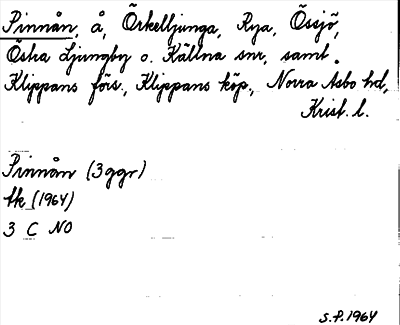 Pinnån, å, Örkelljunga, Rya, Össjö,
Östra Ljungby o. Källna snr, samt
Klippans förs., Klippans köp., Norra Åsbo hd,
Krist. l.
Pinnån (3 ggr)
tk (1964)
3 C NO
S.P. 1964